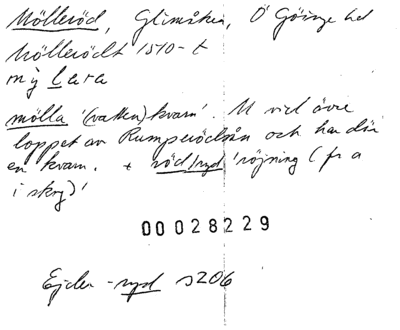 Mölleröd, Glimåkra, Ö Göinge hd
Möllerödt 1570-t
mỳ Lara
mölla '(vatten)kvarn'. M vid övre
loppet av Rumperödsån och har där
en kvarn. + röd/ryd 'röjning (fr a
i skog)'
00028229
Ejder -ryd s206